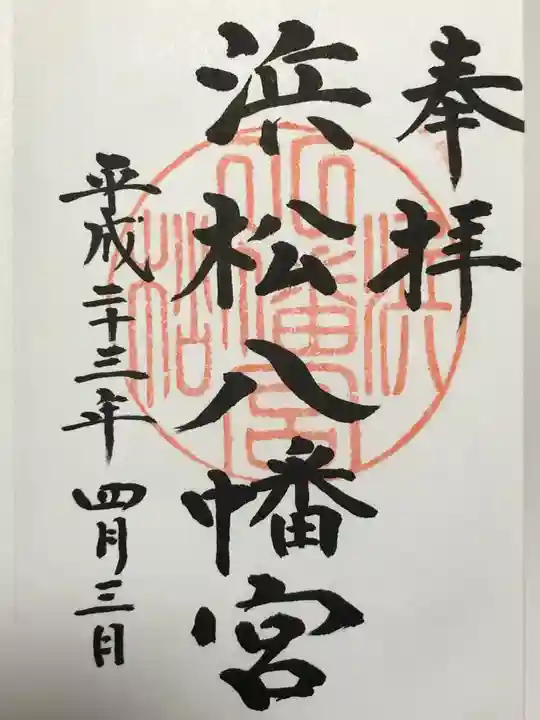 奉拝
浜松八幡宮
平成二十三年四月三日
浜松八幡宮